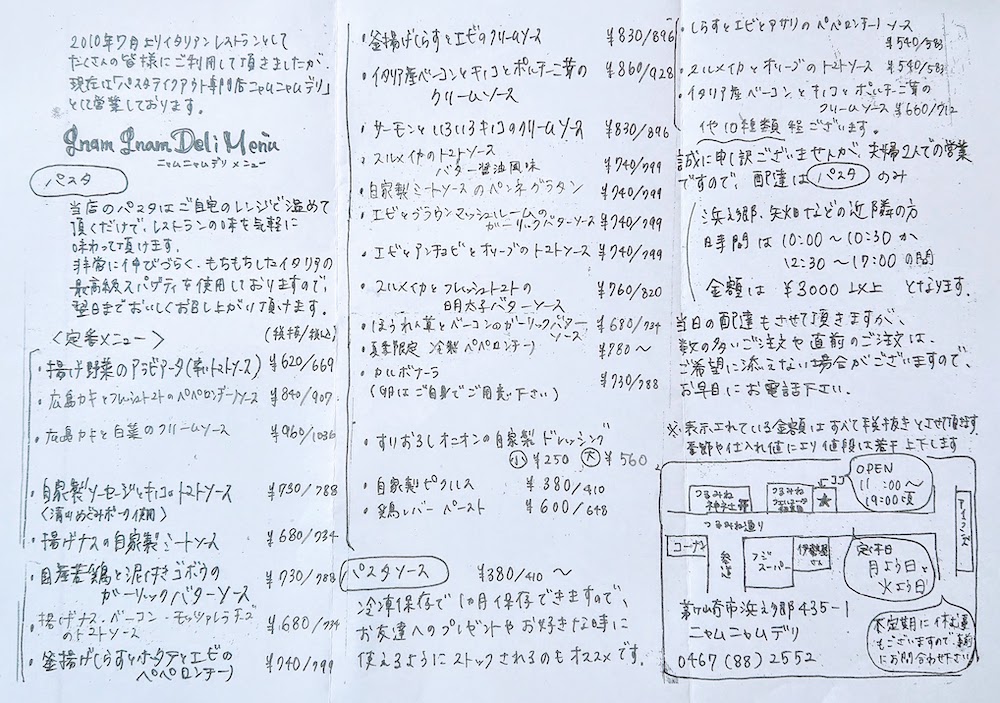 2010年7月よりイタリアンレストランとして
たくさんの皆様にご利用して頂きましたが、
現在は「パスタテイクアウト専門店ニャムニャムデリ」
として営業しております。
Gnam Gnam Deli Menu
ニャムニャムデリ メニュー
パスタ
当店のパスタはご自宅のレンジで温めて
頂くだけで、レストランの味を気軽に
味わって頂けます。
非常に伸びづらく、もちもちしたイタリアの
最高級スパゲティを使用しておりますので、
翌日までおいしくお召し上がり頂けます。
<定番メニュー> (税抜/税込)
・揚げ野菜のアラビアータ(辛いトマトソース) ¥620/669
・広島カキとフレッシュトマトのペペロンチーノソース ¥840/907
・広島カキと白菜のクリームソース ¥960/1036
・自家製ソーセージとキノコのトマトソース ¥730/788
(清川めぐみポーク使用)
・揚げナスの自家製ミートソース ¥680/734
・国産若鶏と泥付きゴボウの
ガーリックバターソース ¥730/788
・揚げナス・ベーコン・モッツァレラチーズ
のトマトソース ¥680/734
・釜揚げしらすとホタテとエビの
ペペロンチーノ ¥740/799
・釜揚げしらすとエビのクリームソース ¥830/896
・イタリア産ベーコンとキノコとポルチーニ茸の ¥860/928
クリームソース
・サーモンといろいろキノコのクリームソース ¥830/896
・スルメイカのトマトソース
バター醤油風味 ¥740/799
・自家製ミートソースのペンネグラタン ¥740/799
・エビとブラウンマッシュルームの
ガーリックバターソース ¥740/799
・エビとアンチョビとオリーブのトマトソース ¥740/799
・スルメイカとフレッシュトマトの ¥760/820
明太子バターソース
・ほうれん草とベーコンのガーリックバター
ソース ¥680/734
・夏季限定 冷製ペペロンチーノ ¥780〜
・カルボナーラ ¥730/788
(卵はご自身でご用意下さい)
・すりおろしオニオンの自家製ドレッシング
小 ¥250 大 ¥560
・自家製ピクルス ¥380/410
・鶏レバーペースト ¥600/648
パスタソース ¥380/410 〜
冷凍保存で1カ月保存できますので、
お友達へのプレゼントやお好きな時に
使えるようにストックされるのもオススメです。
・しらすとエビとアサリのペペロンチーノソース
¥540/583
・スルメイカとオリーブのトマトソース ¥540/583
・イタリア産ベーコンとキノコとポルチーニ茸の
クリームソース ¥660/712
他10種類程ございます。
誠に申し訳ございませんが、夫婦2人での営業
ですので、配達は パスタ のみ
浜之郷、矢畑などの近隣の方
日時間は 10:00〜10:30 か
12:30〜17:00 の間
金額は ¥3000 以上 となります。
当日の配達もさせて頂きますが、
数の多いご注文や直前のご注文は、
ご希望に添えない場合がございますので、
お早目にお電話下さい。
※表示されている金額はすべて税抜きとさせて頂きます
季節や仕入れ値により値段は若干上下します
OPEN
11:00〜
19:00頃
ココ
つるみね
神社
つるみね
つるみね通り
コーナン
参道
フジ
スーパー
伊勢屋
さん
定休日
月よう日と
火よう日
茅ヶ崎市浜之郷435-1
ニャムニャムデリ
0467(88)2552
不定期に休む事
もございますので、事前
にお問合わせ下さい